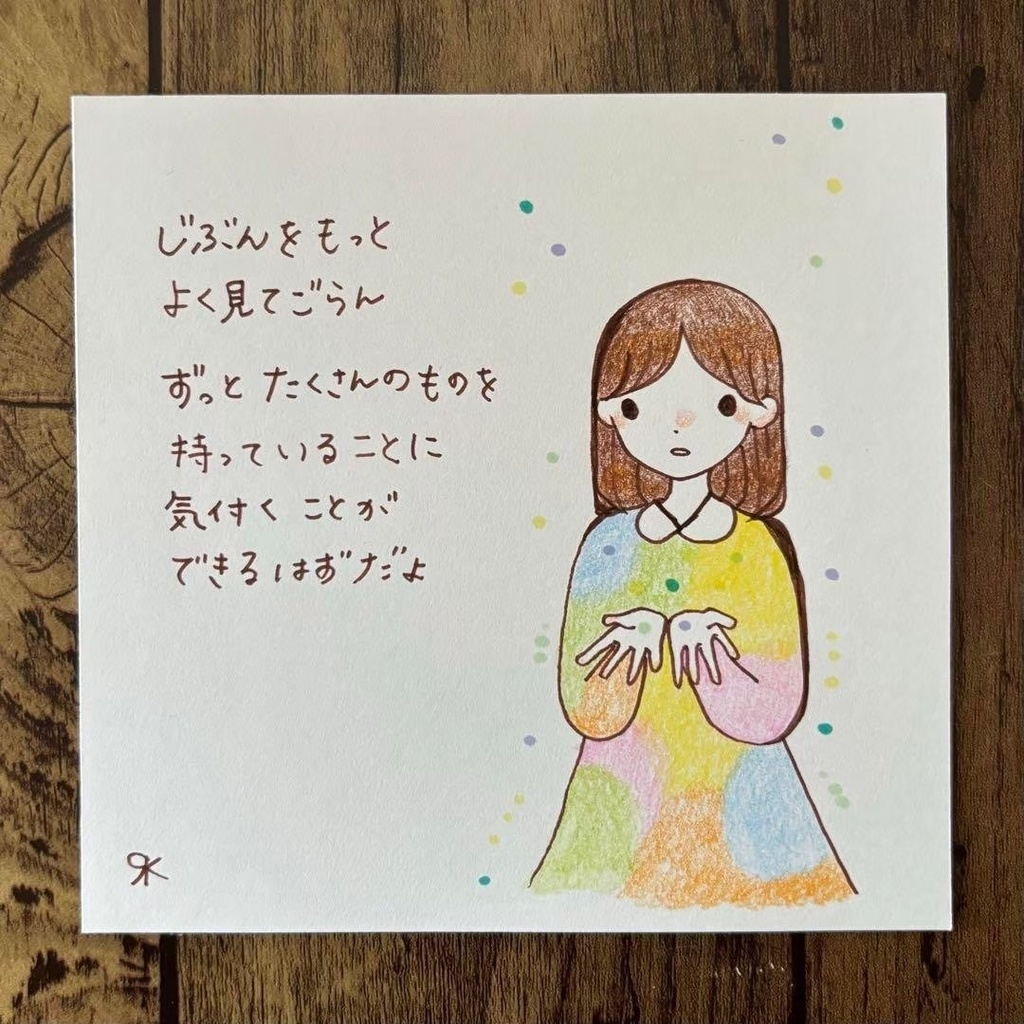 じぶんをもっと
よく見てごらん
ずっと たくさんのものを
持っていることに
気付く ことが
できるはずだよ